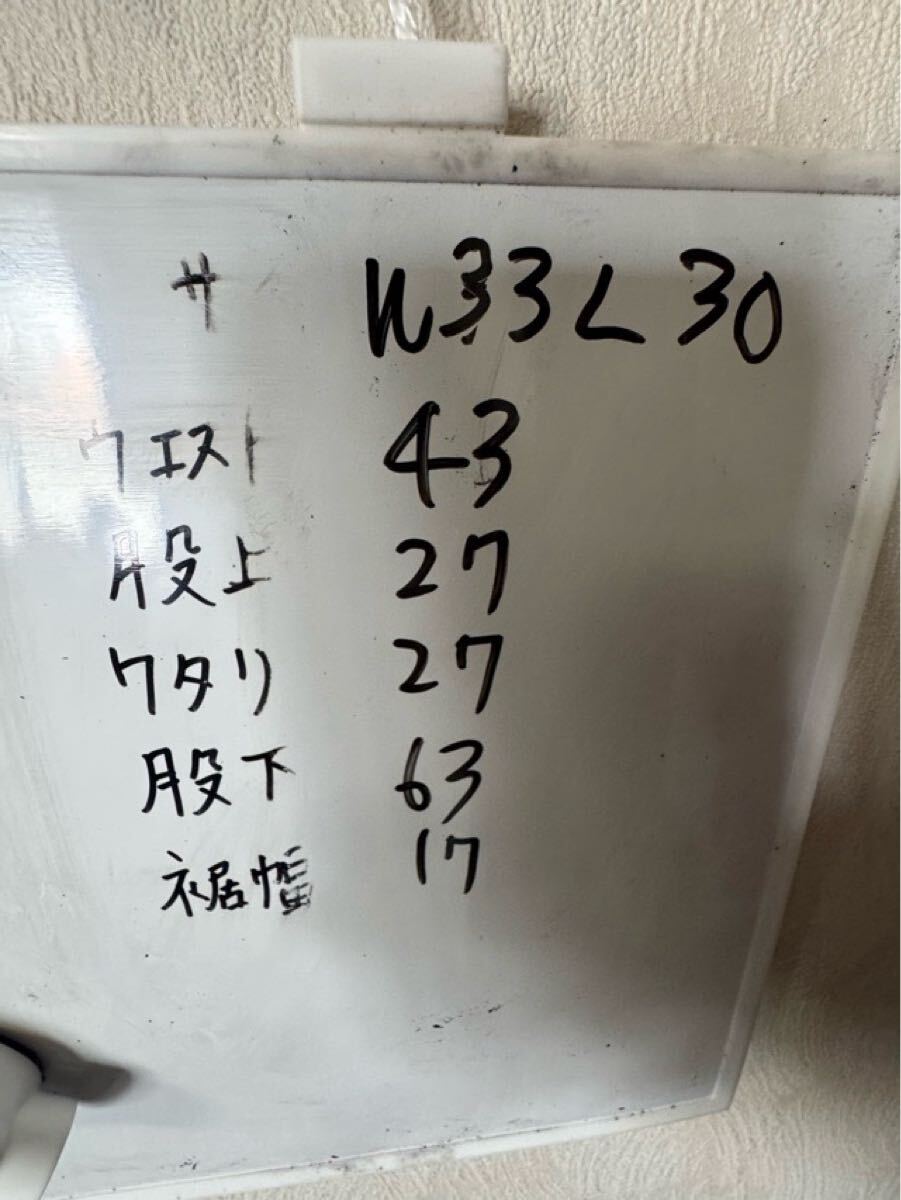 サ W33L30
ウエスト 43
股上 27
ワタリ 27
股下 63
裾幅 17